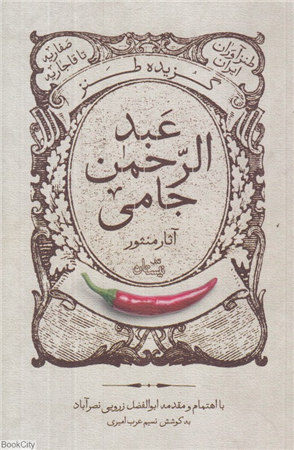 طنزآوران ایران
صفاریه تا قاجاریه
گزیده طنز
عبد
الرّحمن
جامی
آثار منثور
نیستان
با اهتمام و مقدمه ابوالفضل زرویی نصرآباد
به کوشش نسیم عرب امیری
BookCity